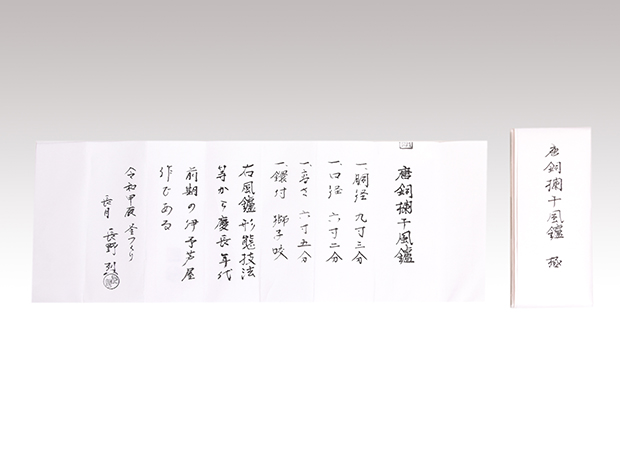 唐銅擂干風鑪
一、胴径 九寸三分
一、口径 六寸二分
一、高さ 六寸五分
一、鐶付 獅子咬
右風鑪形態技法
等から慶長年代
前期の伊予芦屋
作である
令和甲辰 釜つくり
長月 長野 烈
唐銅擂干風鑪